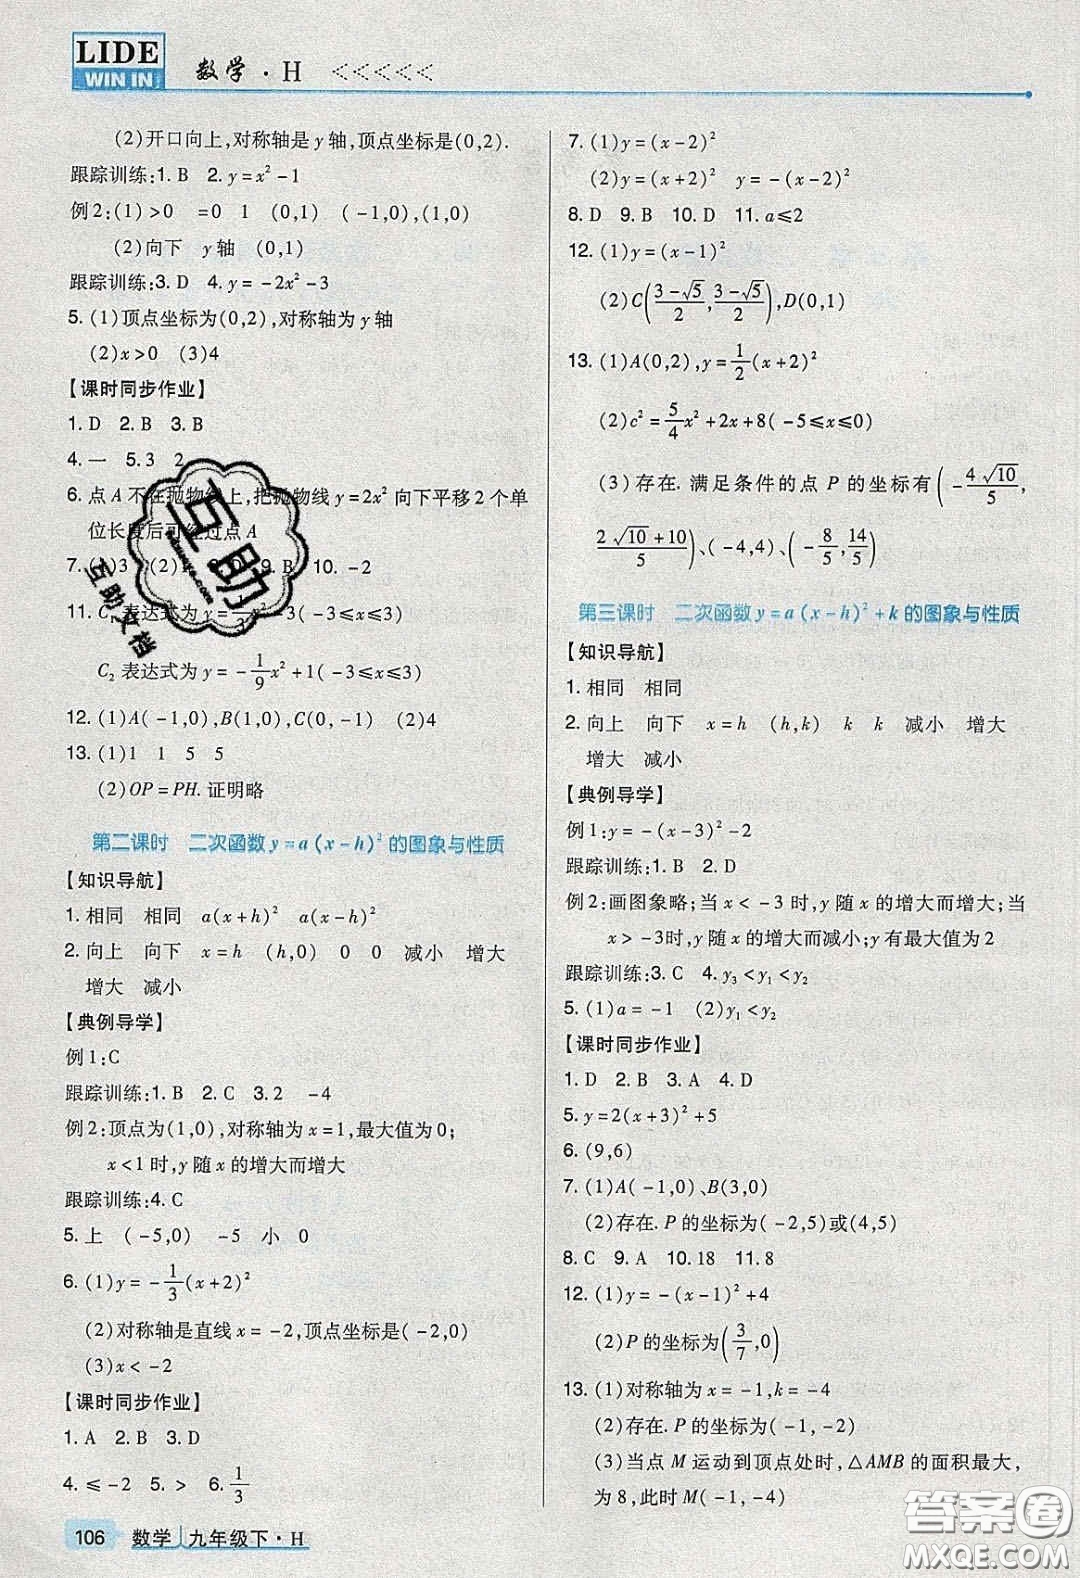 LIDE
WIN IN
数学·H <<<<<
(2)开口向上,对称轴是y轴,顶点坐标是(0,2).
跟踪训练:1. B 2. y=x²-1
例2:(1)>0 =0 1 (0,1) (-1,0),(1,0)
(2)向下 y轴 (0,1)
跟踪训练:3. D 4. y=-2x²-3
5. (1)顶点坐标为(0,2),对称轴为y轴
(2)x>0 (3)4
【课时同步作业】
1. D 2. B 3. B
4. 一 5. 3 2
6. 点A不在抛物线上,把抛物线y=2x²向下平移2个单
位长度后可经过点A
7. (1)3 (2) 9. B 10. -2
11. C₁表达式为y=1/3x²-3(-3≤x≤3)
C₂表达式为y=-1/9x²+1(-3≤x≤3)
12. (1)A(-1,0),B(1,0),C(0,-1) (2)4
13. (1)1 1 5 5
(2)OP=PH.证明略
第二课时 二次函数y=a(x-h)²的图象与性质
【知识导航】
1. 相同 相同 a(x+h)² a(x-h)²
2. 向上 向下 x=h (h,0) 0 0 减小 增大
增大 减小
【典例导学】
例1:C
跟踪训练:1. B 2. C 3. 2 -4
例2:顶点为(1,0),对称轴为x=1,最大值为0;
x<1时,y随x的增大而增大
跟踪训练:4. C
5. 上 (-5,0) -5 小 0
6. (1)y=-1/3(x+2)²
(2)对称轴是直线x=-2,顶点坐标是(-2,0)
(3)x<-2
【课时同步作业】
1. A 2. B 3. D
4. ≤-2 5. > 6. 1/3
7. (1)y=(x-2)²
(2)y=(x+2)² y=-(x-2)²
8. D 9. B 10. D 11. a≤2
12. (1)y=(x-1)²
(2)C((3-√5)/2,(3-√5)/2),D(0,1)
13. (1)A(0,2),y=1/2(x+2)²
(2)c²=5/4x²+2x+8(-5≤x≤0)
(3)存在.满足条件的点P的坐标有(-4√10/5,
(2√10+10)/5)、(-4,4)、(-8/5,14/5)
第三课时 二次函数y=a(x-h)²+k的图象与性质
【知识导航】
1. 相同 相同
2. 向上 向下 x=h (h,k) k k 减小 增大
增大 减小
【典例导学】
例1:y=-(x-3)²-2
跟踪训练:1. C 2. D
例2:画图象略;当x<-3时,y随x的增大而增大;当
x>-3时,y随x的增大而减小;y有最大值为2
跟踪训练:3. C 4. y₃<y₁<y₂
5. (1)a=-1 (2)y₁<y₂
【课时同步作业】
1. D 2. B 3. A 4. D
5. y=2(x+3)²+5
6. (9,6)
7. (1)A(-1,0)、B(3,0)
(2)存在.P的坐标为(-2,5)或(4,5)
8. C 9. A 10. 18 11. 8
12. (1)y=-(x-1)²+4
(2)P的坐标为(3/7,0)
13. (1)对称轴为x=-1,k=-4
(2)存在.P的坐标为(-1,-2)
(3)当点M运动到顶点处时,△AMB的面积最大,
为8,此时M(-1,-4)
106 数学 九年级下·H
互助
互助文档
答案圈
MXQE.COM